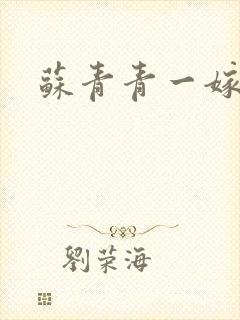 蘇青青一嫁
劉荣海